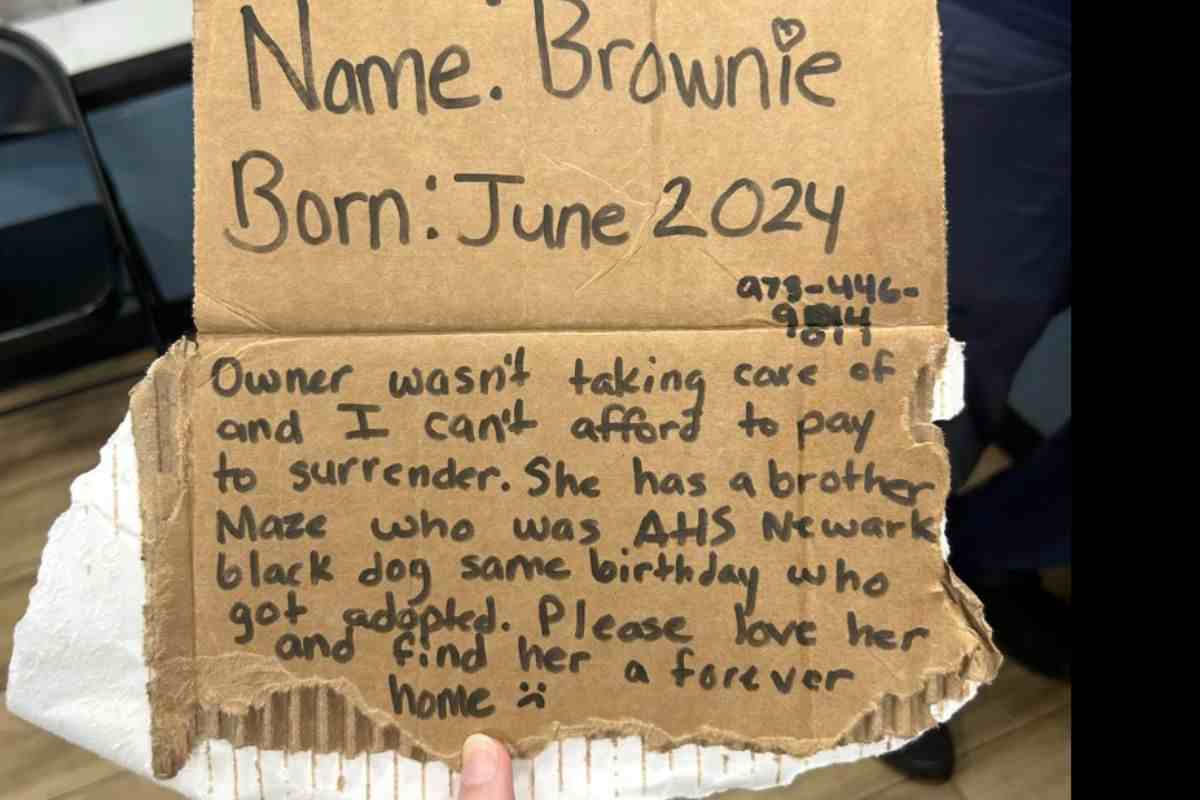 Name: Brownie
Born: June 2024
973-446-
9
011
Owner wasn't taking care of
and I can't afford to pay
to surrender. She has a brother
Maze who was AHS Newark
black dog same birthday who
got adopted. Please love her
and find her a forever
home :(